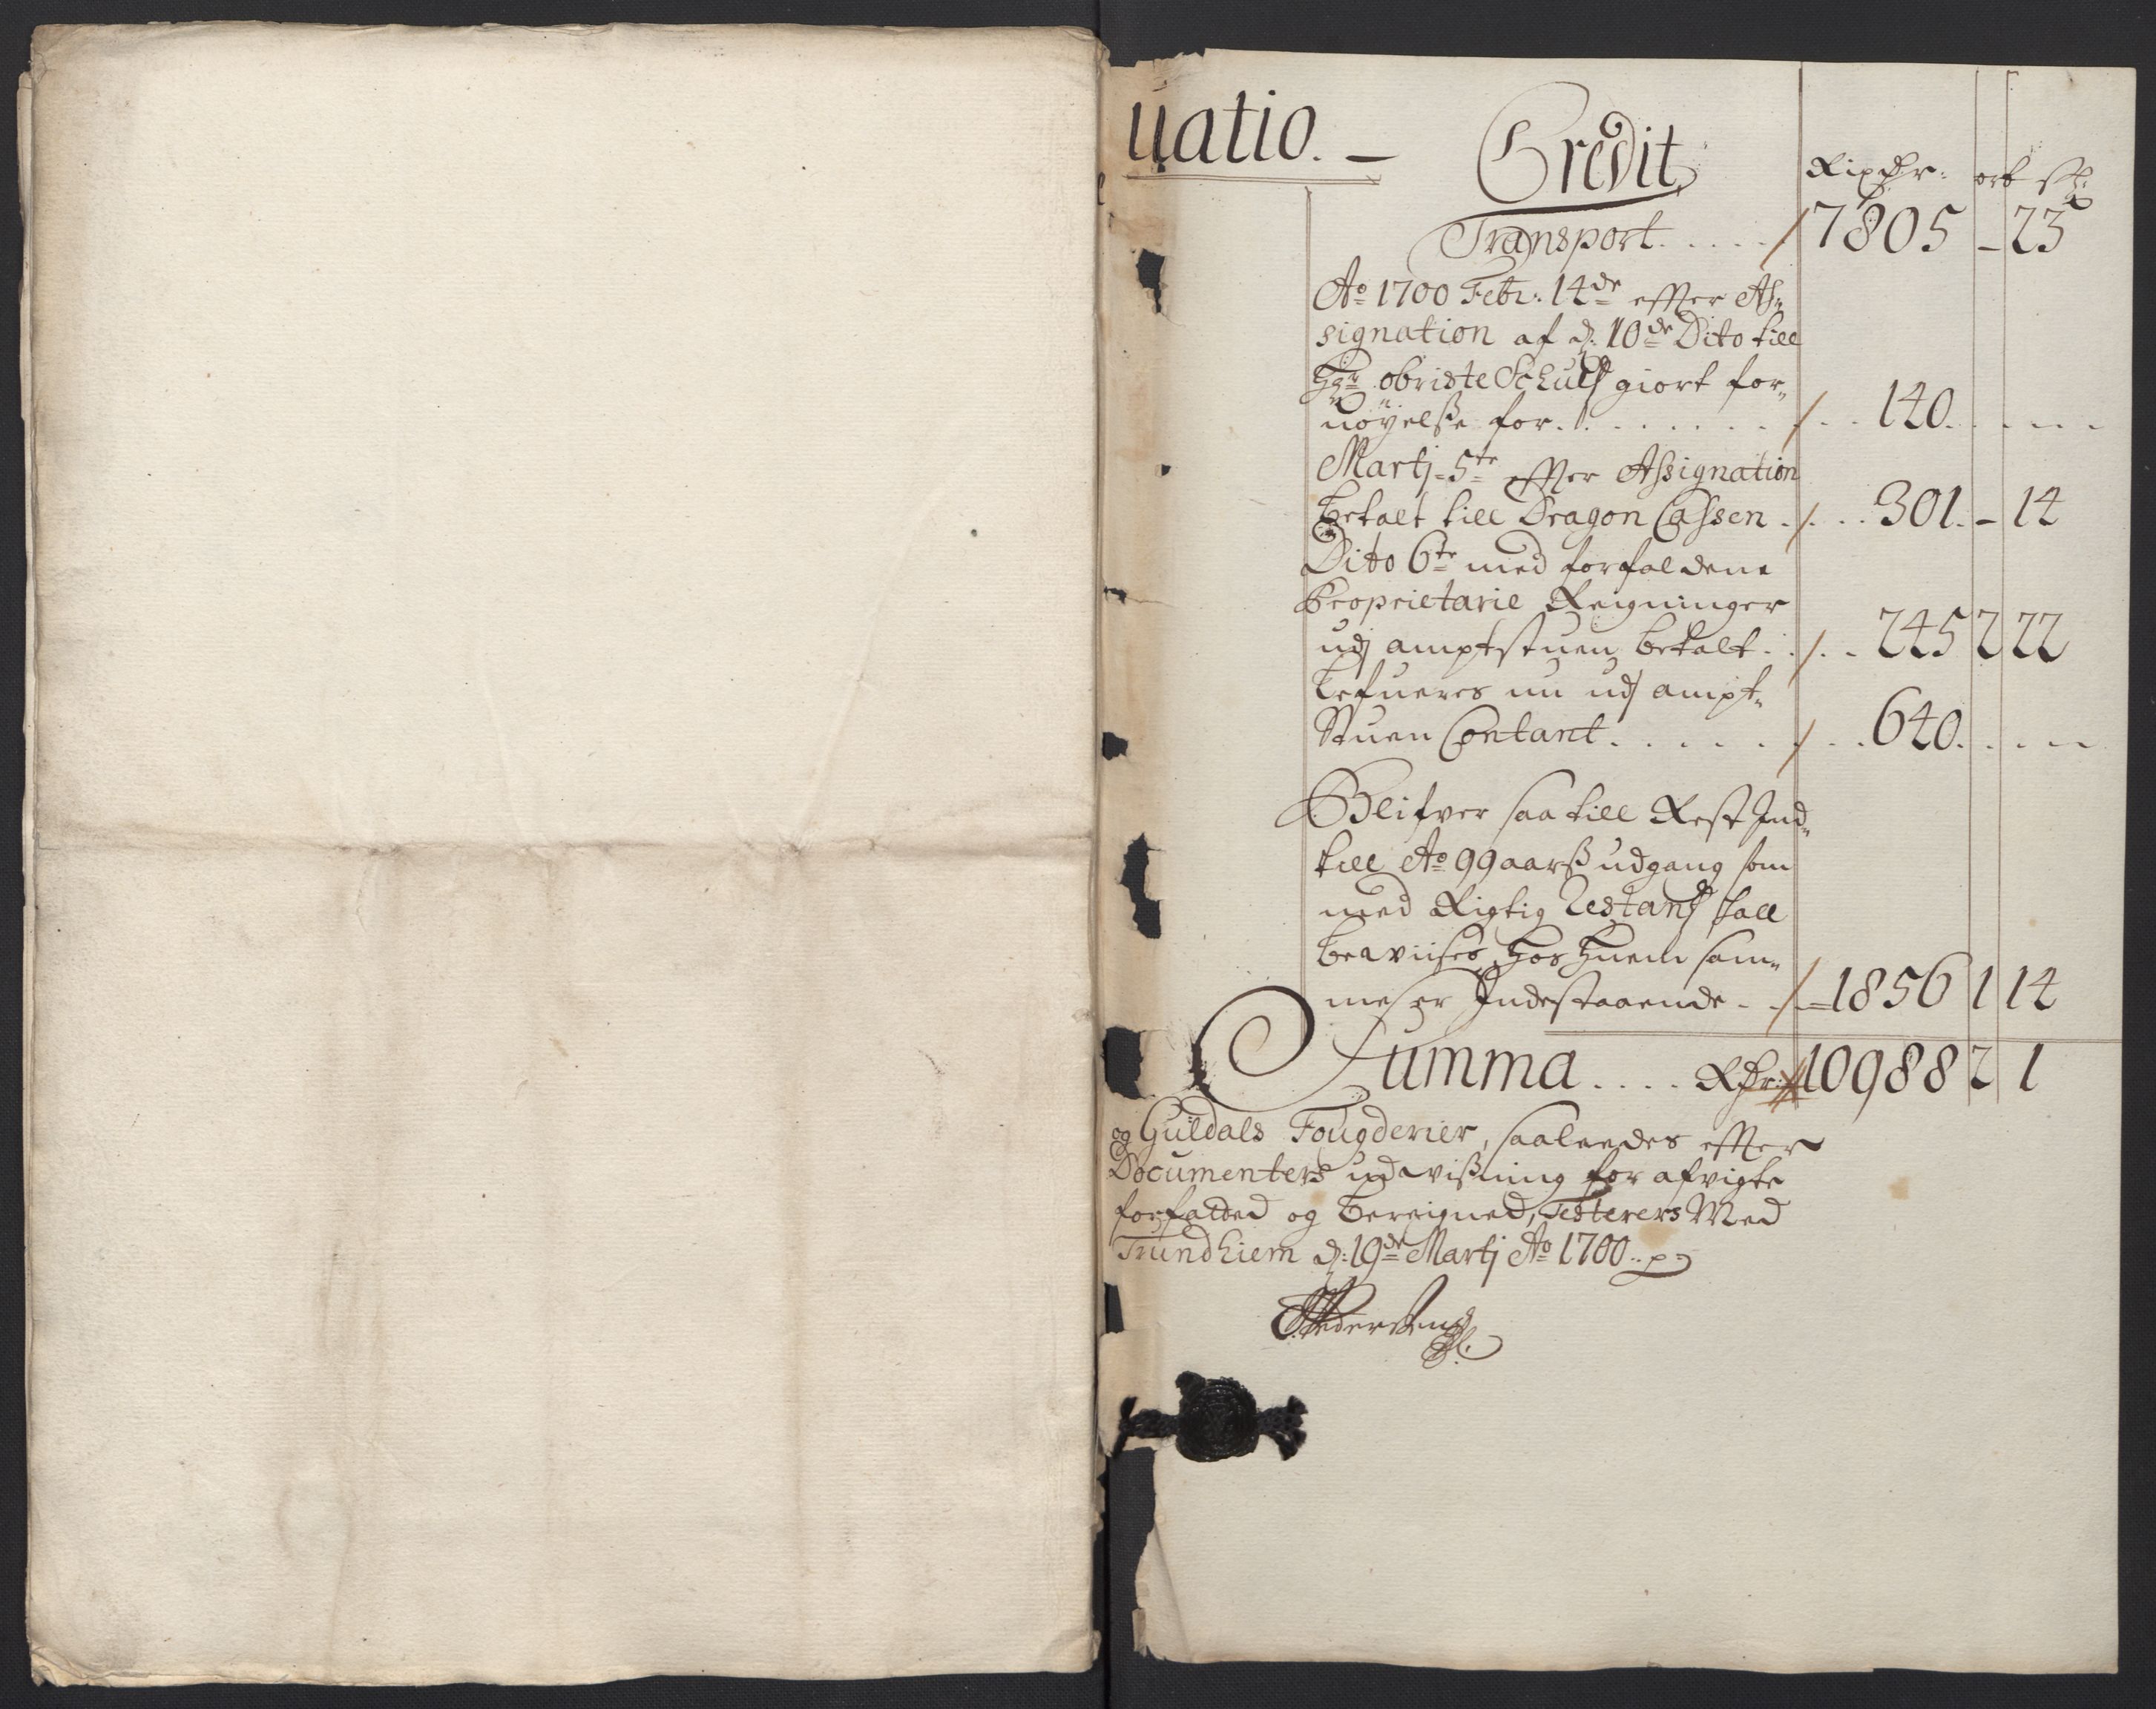 uatio. —
Credit
Rixdr: ort sk:
Transport . . . . . / 7805 – 23
Ao 1700 Febr: 14de effter As„
signation af d: 10de Dito till
Hr obriste Schults giort for„
nöyelsse for . . . . . . . . / . . 140. . . . .
Martj 5te effter Assignation
betalt till Dragon Cassen . / . . . 301. – 14
Dito 6te med forfaldene
Proprietarie Reigninger
udj amptstuen betalt . . / . . 245 2 22
Lefueres nu udj ampt„
Stuen Contant . . . . . . / . . 640. . . . .
Blifver saa till Rest Ind„
till Ao 99 aarss udgang som
med Rigtig Restants skall
bevviises, hos huem sam„
me er Indestaaende - . / 1856 1 14
Summa . . . . Rdr: 10988 2 1
og Guldals Fougderier, saaledes effter
Documenters udvissning for afvigte
forfatted og bereigned, Testerers Med
Trundhiem d: 19de Martj Ao 1700..